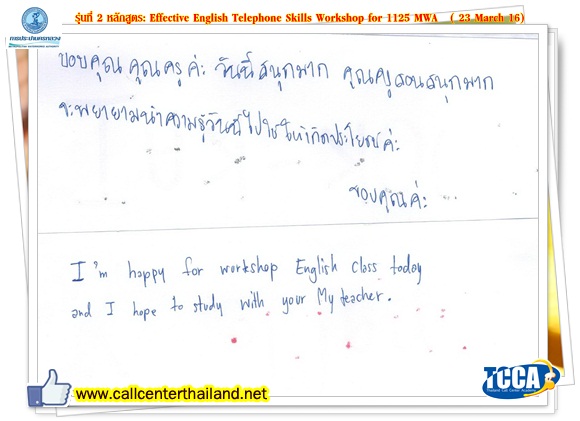 รุ่นที่ 2 หลักสูตร: Effective English Telephone Skills Workshop for 1125 MWA ( 23 March 16)
การประปานครหลวง
ขอบคุณ คุณครู ค่ะ วันนี้สนุกมาก คุณครูสอนสนุกมาก
จะพยายามนำความรู้วันนี้ไปใช้ให้เกิดประโยชน์ค่ะ
ขอบคุณค่ะ
I'm happy for workshop English class today
and I hope to study with your My teacher.
www.callcenterthailand.net
TCCA